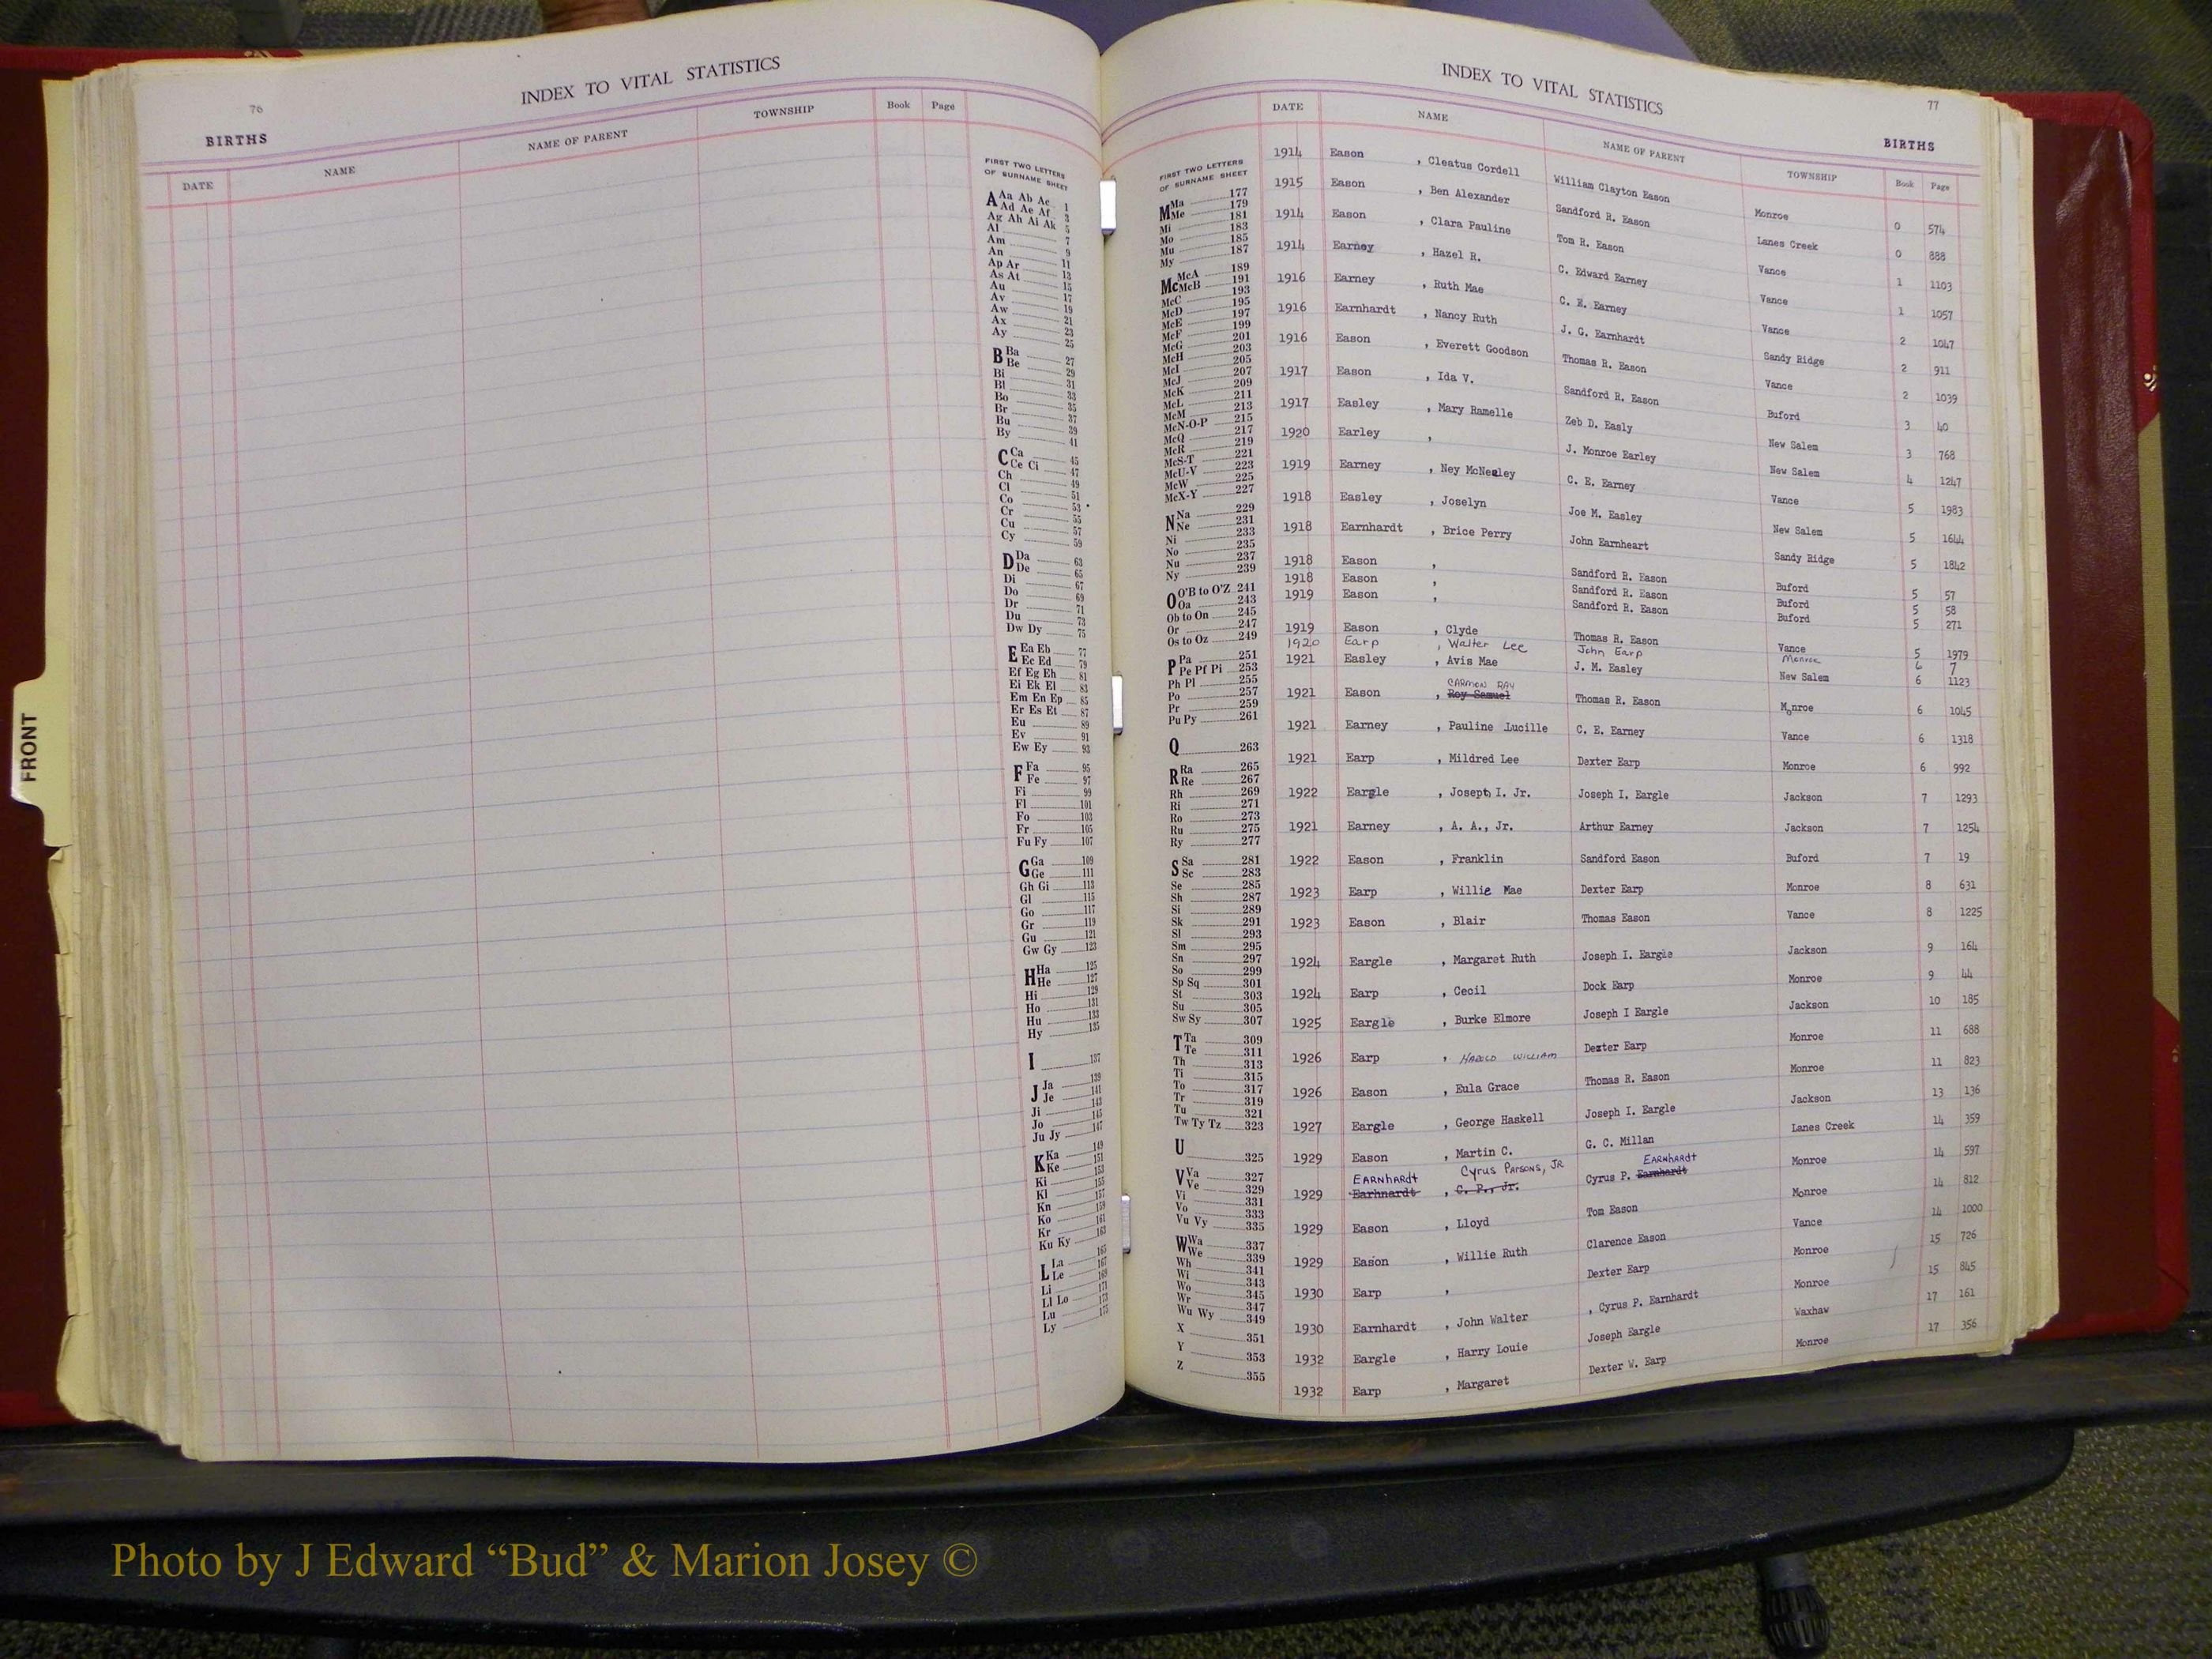 INDEX TO VITAL STATISTICS
76
BIRTHS
DATE NAME NAME OF PARENT TOWNSHIP Book Page
FIRST TWO LETTERS
OF SURNAME SHEET
A Aa Ab Ac 1
Ad Ae Af 3
Ag Ah Ai Ak 5
Al 7
Am 9
An 11
Ap Ar 13
As At 15
Au 17
Av 19
Aw 21
Ax 23
Ay 25
B Ba 27
Be 29
Bi 31
Bl 33
Bo 35
Br 37
Bu 39
By 41
C Ca 45
Ce Ci 47
Ch 49
Cl 51
Co 53
Cr 55
Cu 57
Cy 59
D Da 63
De 65
Di 67
Do 69
Dr 71
Du 73
Dw Dy 75
E Ea Eb 77
Ec Ed 79
Ef Eg Eh 81
Ei Ek El 83
Em En Ep 85
Er Es Et 87
Eu 89
Ev 91
Ew Ey 93
F Fa 95
Fe 97
Fi 99
Fl 101
Fo 103
Fr 105
Fu Fy 107
G Ga 109
Ge 111
Gh Gi 113
Gl 115
Go 117
Gr 119
Gu 121
Gw Gy 123
H Ha 125
He 127
Hi 129
Ho 131
Hu 133
Hy 135
I 137
J Ja 139
Je 141
Ji 143
Jo 145
Ju Jy 147
K Ka 149
Ke 151
Ki 153
Kl 155
Kn 157
Ko 159
Kr 161
Ku Ky 163
L La 165
Le 167
Li 169
Ll Lo 171
Lu 173
Ly 175
FRONT
INDEX TO VITAL STATISTICS
77
BIRTHS
DATE NAME NAME OF PARENT TOWNSHIP Book Page
FIRST TWO LETTERS
OF SURNAME SHEET
M Ma 177
Me 179
Mi 181
Mo 183
Mu 185
My 187
Mc McA 189
McB 191
McC 193
McD 195
McE 197
McF 199
McG 201
McH 203
McI 205
McJ 207
McK 209
McL 211
McM 213
McN-O-P 215
McQ 217
McR 219
McS-T 221
McU-V 223
McW 225
McX-Y 227
N Na 229
Ne 231
Ni 233
No 235
Nu 237
Ny 239
O O'B to O'Z 241
Oa 243
Ob to On 245
Or 247
Os to Oz 249
P Pa 251
Pe Pf Pi 253
Ph Pl 255
Po 257
Pr 259
Pu Py 261
Q 263
R Ra 265
Re 267
Rh 269
Ri 271
Ro 273
Ru 275
Ry 277
S Sa 281
Sc 283
Se 285
Sh 287
Si 289
Sk 291
Sl 293
Sm 295
Sn 297
So 299
Sp Sq 301
St 303
Su 305
Sw Sy 307
T Ta 309
Te 311
Th 313
Ti 315
To 317
Tr 319
Tu 321
Tw Ty Tz 323
U 325
V Va 327
Ve 329
Vi 331
Vo 333
Vu Vy 335
W Wa 337
We 339
Wh 341
Wi 343
Wo 345
Wr 347
Wu Wy 349
X 351
Y 353
Z 355
1914 Eason , Cleatus Cordell William Clayton Eason Monroe 0 574
1915 Eason , Ben Alexander Sandford R. Eason Lanes Creek 0 888
1914 Eason , Clara Pauline Tom R. Eason Vance 1 1103
1914 Earney , Hazel R. C. Edward Earney Vance 1 1057
1916 Earney , Ruth Mae C. E. Earney Vance 2 1047
1916 Earnhardt , Nancy Ruth J. G. Earnhardt Sandy Ridge 2 911
1916 Eason , Everett Goodson Thomas R. Eason Vance 2 1039
1917 Eason , Ida V. Sandford R. Eason Buford 3 40
1917 Easley , Mary Ramelle Zeb D. Easly New Salem 3 768
1920 Earley , J. Monroe Earley New Salem 4 1247
1919 Earney , Ney McNealey C. E. Earney Vance 5 1983
1918 Easley , Joselyn Joe M. Easley New Salem 5 1644
1918 Earnhardt , Brice Perry John Earnheart Sandy Ridge 5 1842
1918 Eason , Sandford R. Eason Buford 5 57
1918 Eason , Sandford R. Eason Buford 5 58
1919 Eason , Sandford R. Eason Buford 5 271
1919 Eason , Clyde Thomas R. Eason Vance 5 1979
1920 Earp , Walter Lee John Earp Monroe 6 7
1921 Easley , Avis Mae J. M. Easley New Salem 6 1123
CARMON RAY
1921 Eason , Roy Samuel Thomas R. Eason Monroe 6 1045
1921 Earney , Pauline Lucille C. E. Earney Vance 6 1318
1921 Earp , Mildred Lee Dexter Earp Monroe 6 992
1922 Eargle , Joseph I. Jr. Joseph I. Eargle Jackson 7 1293
1921 Earney , A. A., Jr. Arthur Earney Jackson 7 1254
1922 Eason , Franklin Sandford Eason Buford 7 19
1923 Earp , Willie Mae Dexter Earp Monroe 8 631
1923 Eason , Blair Thomas Eason Vance 8 1225
1924 Eargle , Margaret Ruth Joseph I. Eargle Jackson 9 164
1924 Earp , Cecil Dock Earp Monroe 9 44
1925 Eargle , Burke Elmore Joseph I Eargle Jackson 10 185
1926 Earp , HAROLD WILLIAM Dexter Earp Monroe 11 688
1926 Eason , Eula Grace Thomas R. Eason Monroe 11 823
1927 Eargle , George Haskell Joseph I. Eargle Jackson 13 136
1929 Eason , Martin C. G. C. Millan Lanes Creek 14 359
EARNHARDT Cyrus PARSONS, JR EARNHARDT
1929 Earhnardt , C. P., Jr. Cyrus P. Earnhardt Monroe 14 597
1929 Eason , Lloyd Tom Eason Monroe 14 812
1929 Eason , Willie Ruth Clarence Eason Vance 14 1000
1930 Earp , Dexter Earp Monroe 15 726
1930 Earnhardt , John Walter , Cyrus P. Earnhardt Monroe 15 845
1932 Eargle , Harry Louie Joseph Eargle Waxhaw 17 161
1932 Earp , Margaret Dexter W. Earp Monroe 17 356
Photo by J Edward “Bud” & Marion Josey ©